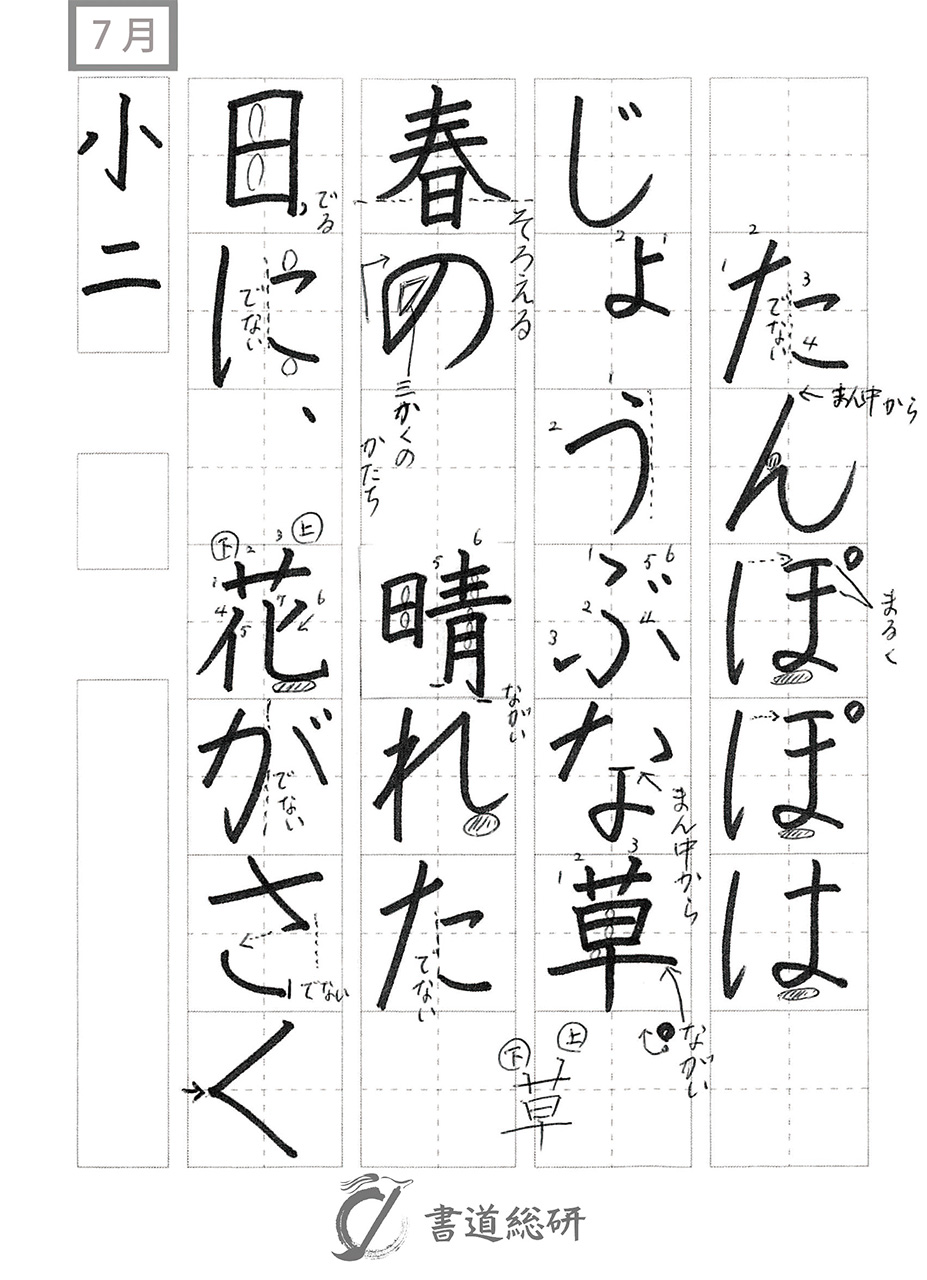 7月
たんぽぽは
じょうぶな草
春の 晴れた
日に、花がさく
小二
でない
まん中から
まるく
1
2
3
4
2
1
1
2
1
2
3
4
5
6
まん中から
1
2
3
ながい
下
上
草
そろえる
三かくの
かたち
5
6
ながい
でない
でる
でない
下
上
1
2
3
4
5
6
7
でない
でない
書道総研